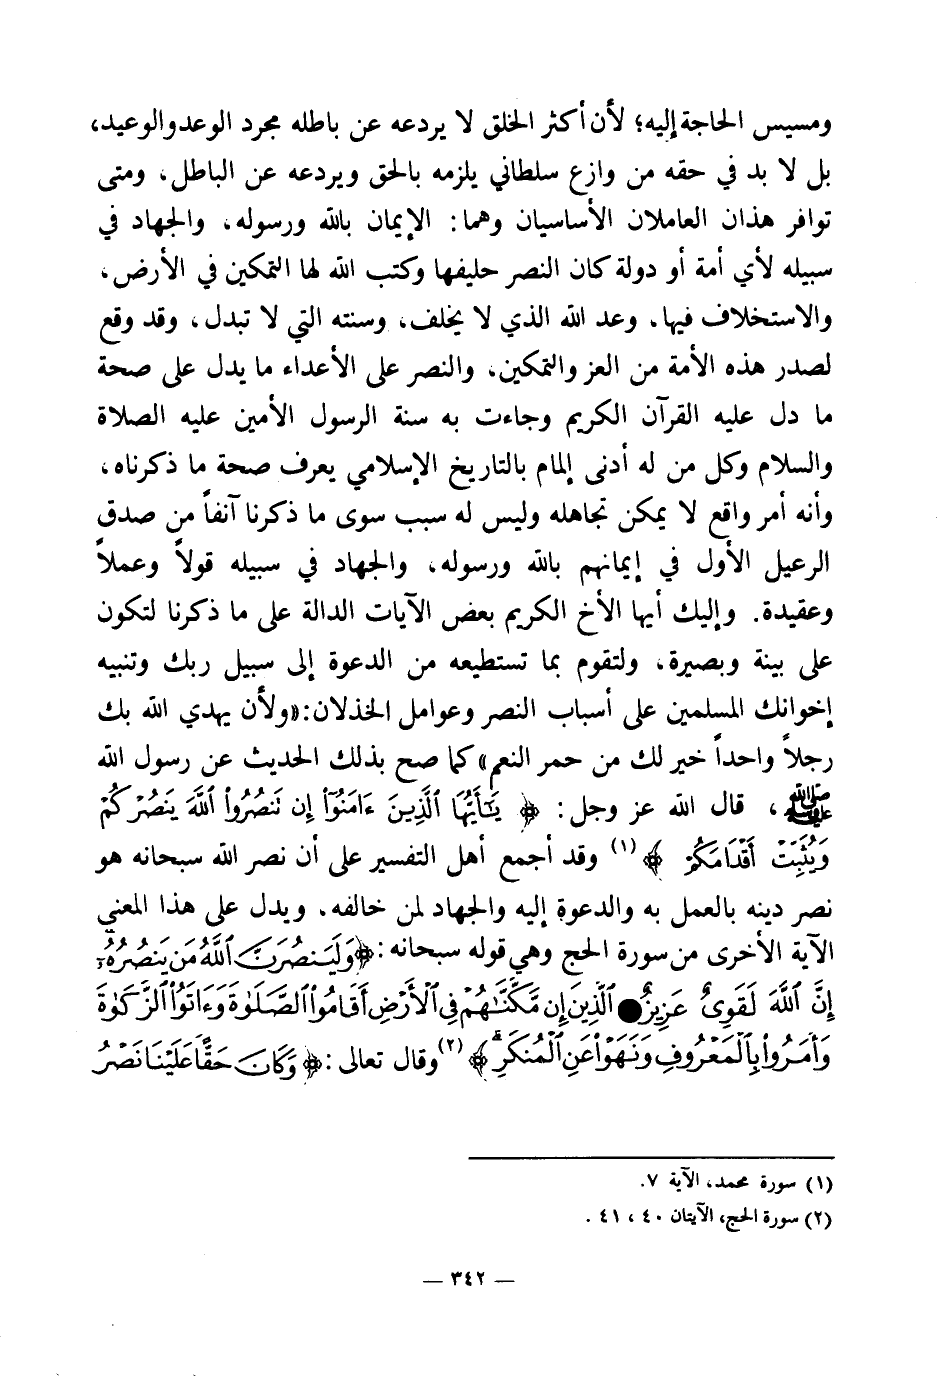 ومسيس الحاجة إليه؛ لأن أكثر الخلق لا يردعه عن باطله مجرد الوعد والوعيد،
بل لا بد في حقه من وازع سلطاني يلزمه بالحق ويردعه عن الباطل، ومتى
توافر هذان العاملان الأساسيان وهما: الإيمان بالله ورسوله، والجهاد في
سبيله لأي أمة أو دولة كان النصر حليفها وكتب الله لها التمكين في الأرض،
والاستخلاف فيها. وعد الله الذي لا يخلف، وسنته التي لا تبدل، وقد وقع
لصدر هذه الأمة من العز والتمكين، والنصر على الأعداء ما يدل على صحة
ما دل عليه القرآن الكريم وجاءت به سنة الرسول الأمين عليه الصلاة
والسلام وكل من له أدنى إلمام بالتاريخ الإسلامي يعرف صحة ما ذكرناه،
وأنه أمر واقع لا يمكن تجاهله وليس له سبب سوى ما ذكرنا آنفاً من صدق
الرعيل الأول في إيمانهم بالله ورسوله، والجهاد في سبيله قولاً وعملاً
وعقيدة. وإليك أيها الأخ الكريم بعض الآيات الدالة على ما ذكرنا لتكون
على بينة وبصيرة، ولتقوم بما تستطيعه من الدعوة إلى سبيل ربك وتنبيه
إخوانك المسلمين على أسباب النصر وعوامل الخذلان: «ولأن يهدي الله بك
رجلاً واحداً خير لك من حمر النعم» كما صح بذلك الحديث عن رسول الله
ﷺ، قال الله عز وجل: ﴿ يَٰٓأَيُّهَا ٱلَّذِينَ ءَامَنُوٓا۟ إِن تَنصُرُوا۟ ٱللَّهَ يَنصُرْكُمْ
وَيُثَبِّتْ أَقْدَامَكُمْ ﴾(١) وقد أجمع أهل التفسير على أن نصر الله سبحانه هو
نصر دينه بالعمل به والدعوة إليه والجهاد لمن خالفه. ويدل على هذا المعنى
الآية الأخرى من سورة الحج وهي قوله سبحانه: ﴿وَلَيَنصُرَنَّ ٱللَّهُ مَن يَنصُرُهُۥٓ
إِنَّ ٱللَّهَ لَقَوِىٌّ عَزِيزٌ ● ٱلَّذِينَ إِن مَّكَّنَّٰهُمْ فِى ٱلْأَرْضِ أَقَامُوا۟ ٱلصَّلَوٰةَ وَءَاتَوُا۟ ٱلزَّكَوٰةَ
وَأَمَرُوا۟ بِٱلْمَعْرُوفِ وَنَهَوْا۟ عَنِ ٱلْمُنكَرِ ۗ﴾(٢) وقال تعالى: ﴿ وَكَانَ حَقًّا عَلَيْنَا نَصْرُ
(١) سورة محمد، الآية ٧.
(٢) سورة الحج، الآيتان ٤٠ ، ٤١ .
— ٣٤٢ —